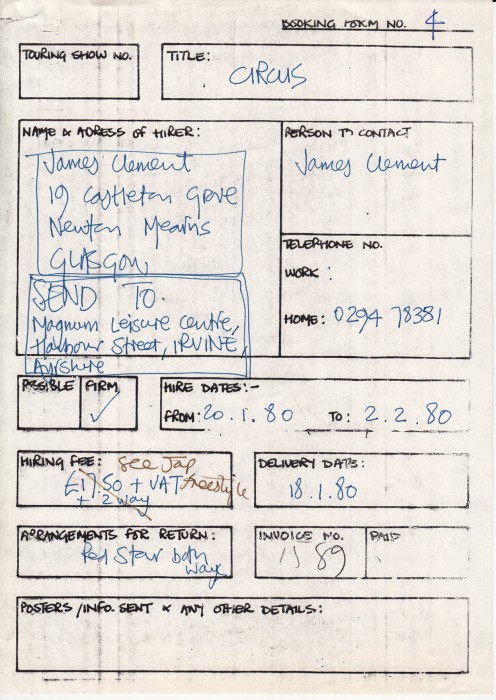 BOOKING FORM NO. 4
TOURING SHOW NO.
TITLE:
CIRCUS
NAME & ADRESS OF HIRER:
James Clement
19 Castleton Grove
Newton Mearns
GLASGOW
SEND TO
Magnum Leisure Centre,
Harbour Street, IRVINE,
Ayrshire
PERSON TO CONTACT
James Clement
TELERPHONE NO.
WORK:
HOME: 0294 78381
POSSIBLE FIRM
✓
HIRE DATES:-
FROM: 20.1.80 TO: 2.2.80
HIRING FEE: see Jap
£17.50 + VAT freestyle
+ 2 way
DELIVERY DATE:
18.1.80
ARRANGEMENTS FOR RETURN:
Red Star both
way
INVOICE NO.
1189
PAID
POSTERS/INFO. SENT & ANY OTHER DETAILS: